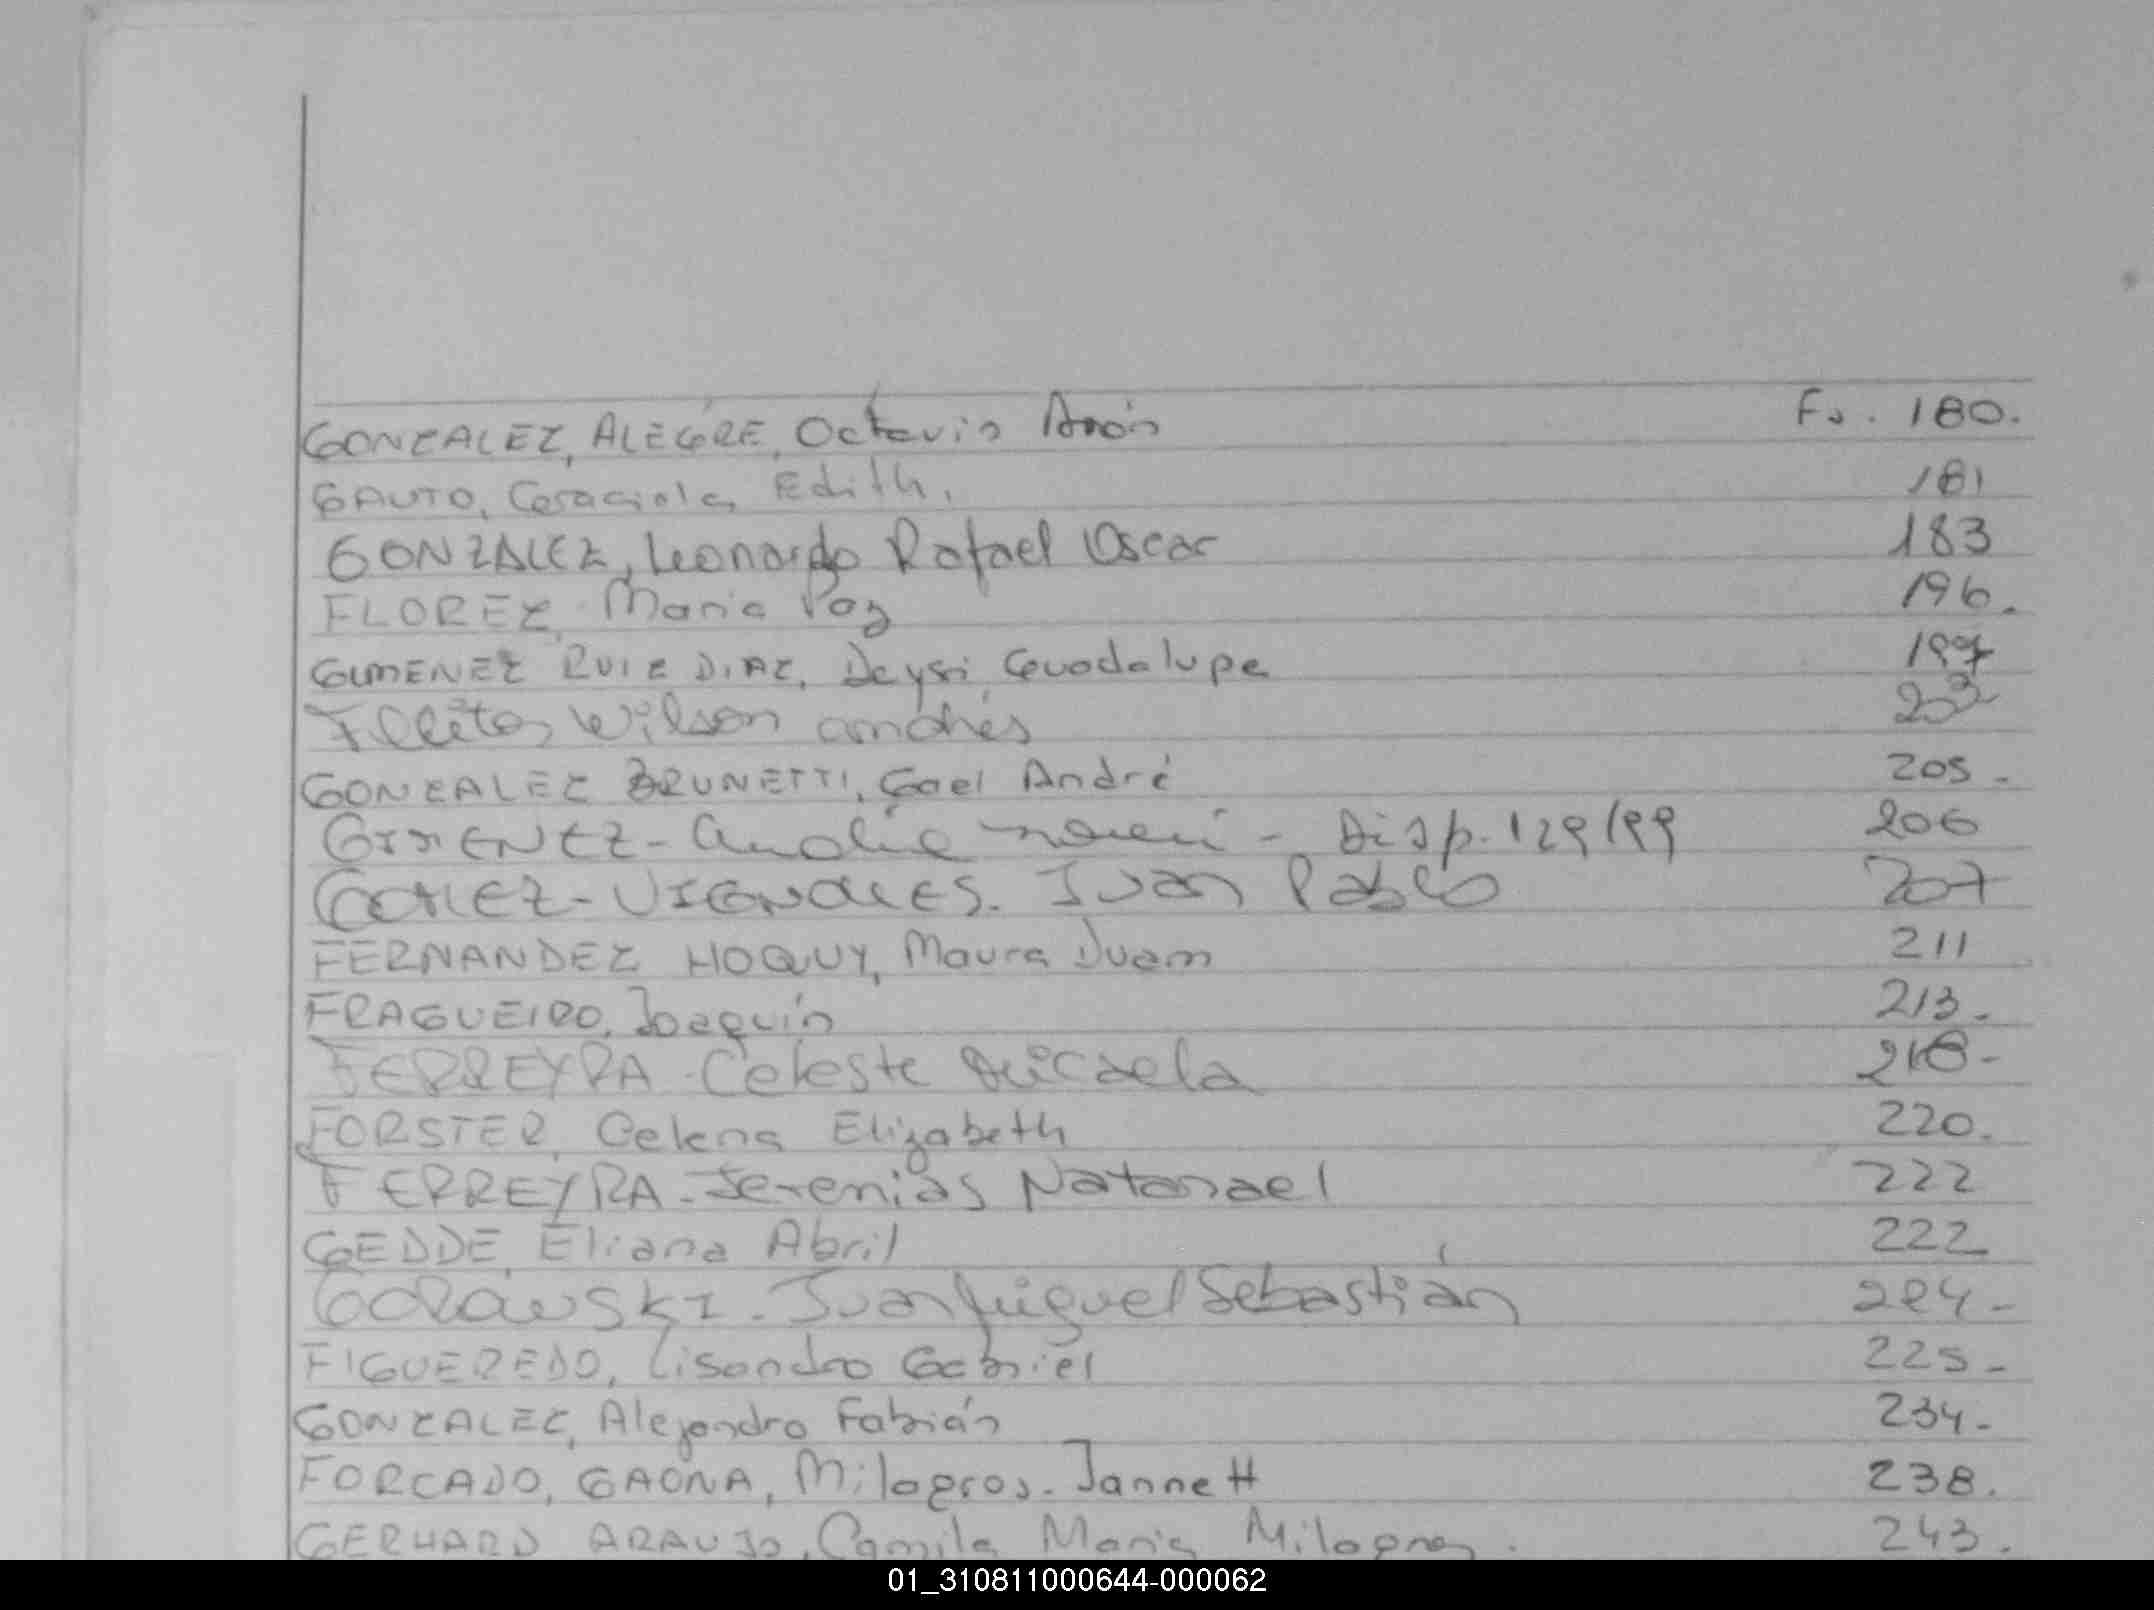 GONZALEZ, ALEGRE, Octavio Arón Fs. 180.
GAUTO, Edith. 181
GONZALEZ, Leonardo Rafael Oscar 183
FLOREZ, Maria Paz 196.
GIMENEZ RUIZ DIAZ, Deysi Guadalupe 197
Fleitas, Wilson andrés
GONZALEZ BRUNETTI, Gael André 205.
GIMENEZ - Analia - Disp. 129/99 206
GOMEZ - VIGNOLLES. Juan Pablo 207
FERNANDEZ HOQUY, Maura 211
FRAGUEIRO, Joaquín 213.
FERREYRA - Celeste Micaela 218-
FORSTER, Celena Elizabeth 220.
FERREYRA - Jeremias Natanael 222
GEDDE, Eliana Abril 222
GORAWSKI - Juan Miguel Sebastián 224-
FIGUEREDO, Lisandro Gabriel 225-
GONZALEZ, Alejandro Fabián 234-
FORCADO, GAONA, Milagros. Jannett 238.
GERHARD ARAUJO, Camila Maria Milagros. 243.
01_310811000644-000062